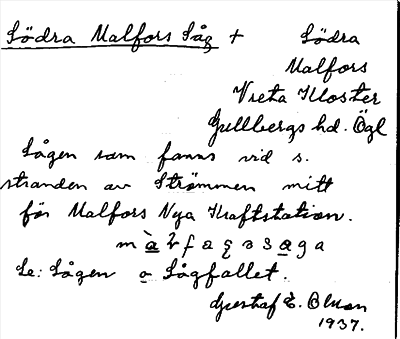 Södra Malfors Såg + Södra
Malfors
Vreta Kloster
Gullbergs hd. Ögl
Sågen som fanns vid s.
stranden av Strömmen mitt
för Malfors Nya Kraftstation.
Se: Sågen o Sågfallet.
Gustaf E.
1937.